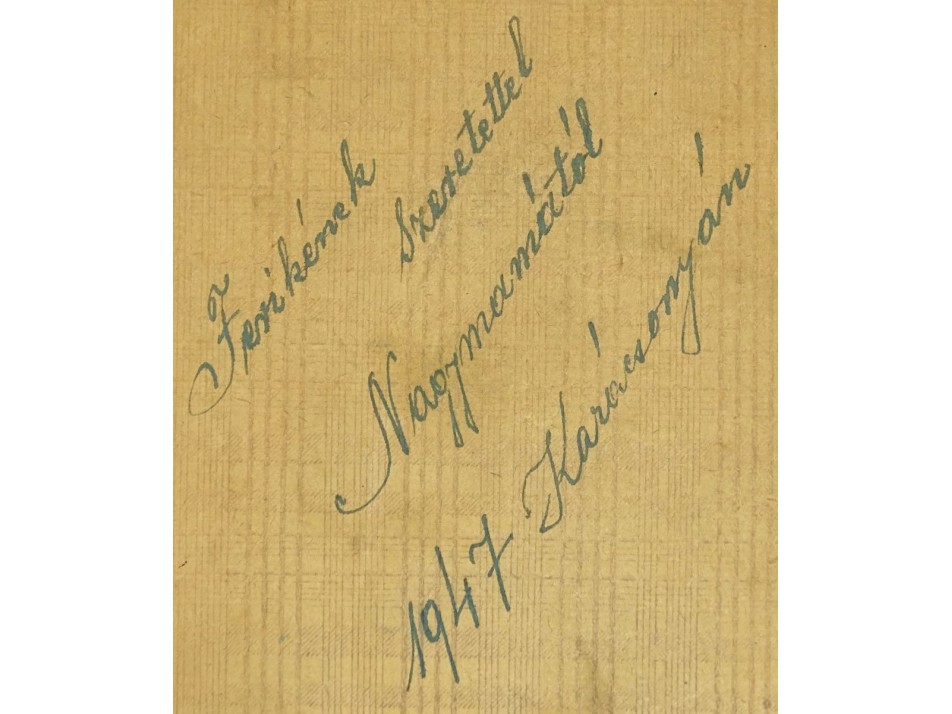 Ferikének
szeretettel
Nagymamától
1947 Karácsonyán